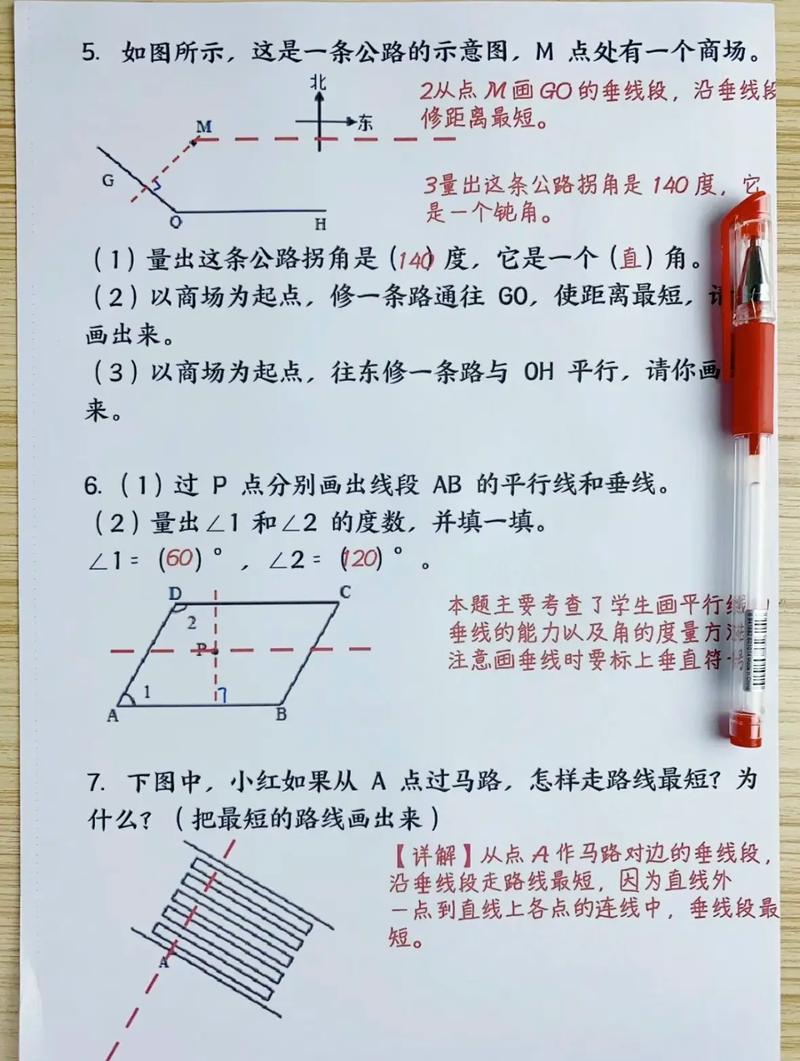 5. 如图所示，这是一条公路的示意图，M 点处有一个商场。
北
东
M
G
O
H
2从点 M 画 GO 的垂线段，沿垂线段
修距离最短。
3量出这条公路拐角是 140 度，它
是一个钝角。
（1）量出这条公路拐角是（140）度，它是一个（直）角。
（2）以商场为起点，修一条路通往 GO，使距离最短，请
画出来。
（3）以商场为起点，往东修一条路与 OH 平行，请你画
来。
6.（1）过 P 点分别画出线段 AB 的平行线和垂线。
（2）量出∠1 和∠2 的度数，并填一填。
∠1 =（60）°，∠2 =（120）°。
D
C
2
P
1
A
B
本题主要考查了学生画平行
垂线的能力以及角的度量方
注意画垂线时要标上垂直符号
7. 下图中，小红如果从 A 点过马路，怎样走路线最短？为
什么？（把最短的路线画出来）
【详解】从点 A 作马路对边的垂线段，
沿垂线段走路线最短，因为直线外
一点到直线上各点的连线中，垂线段最
短。
A